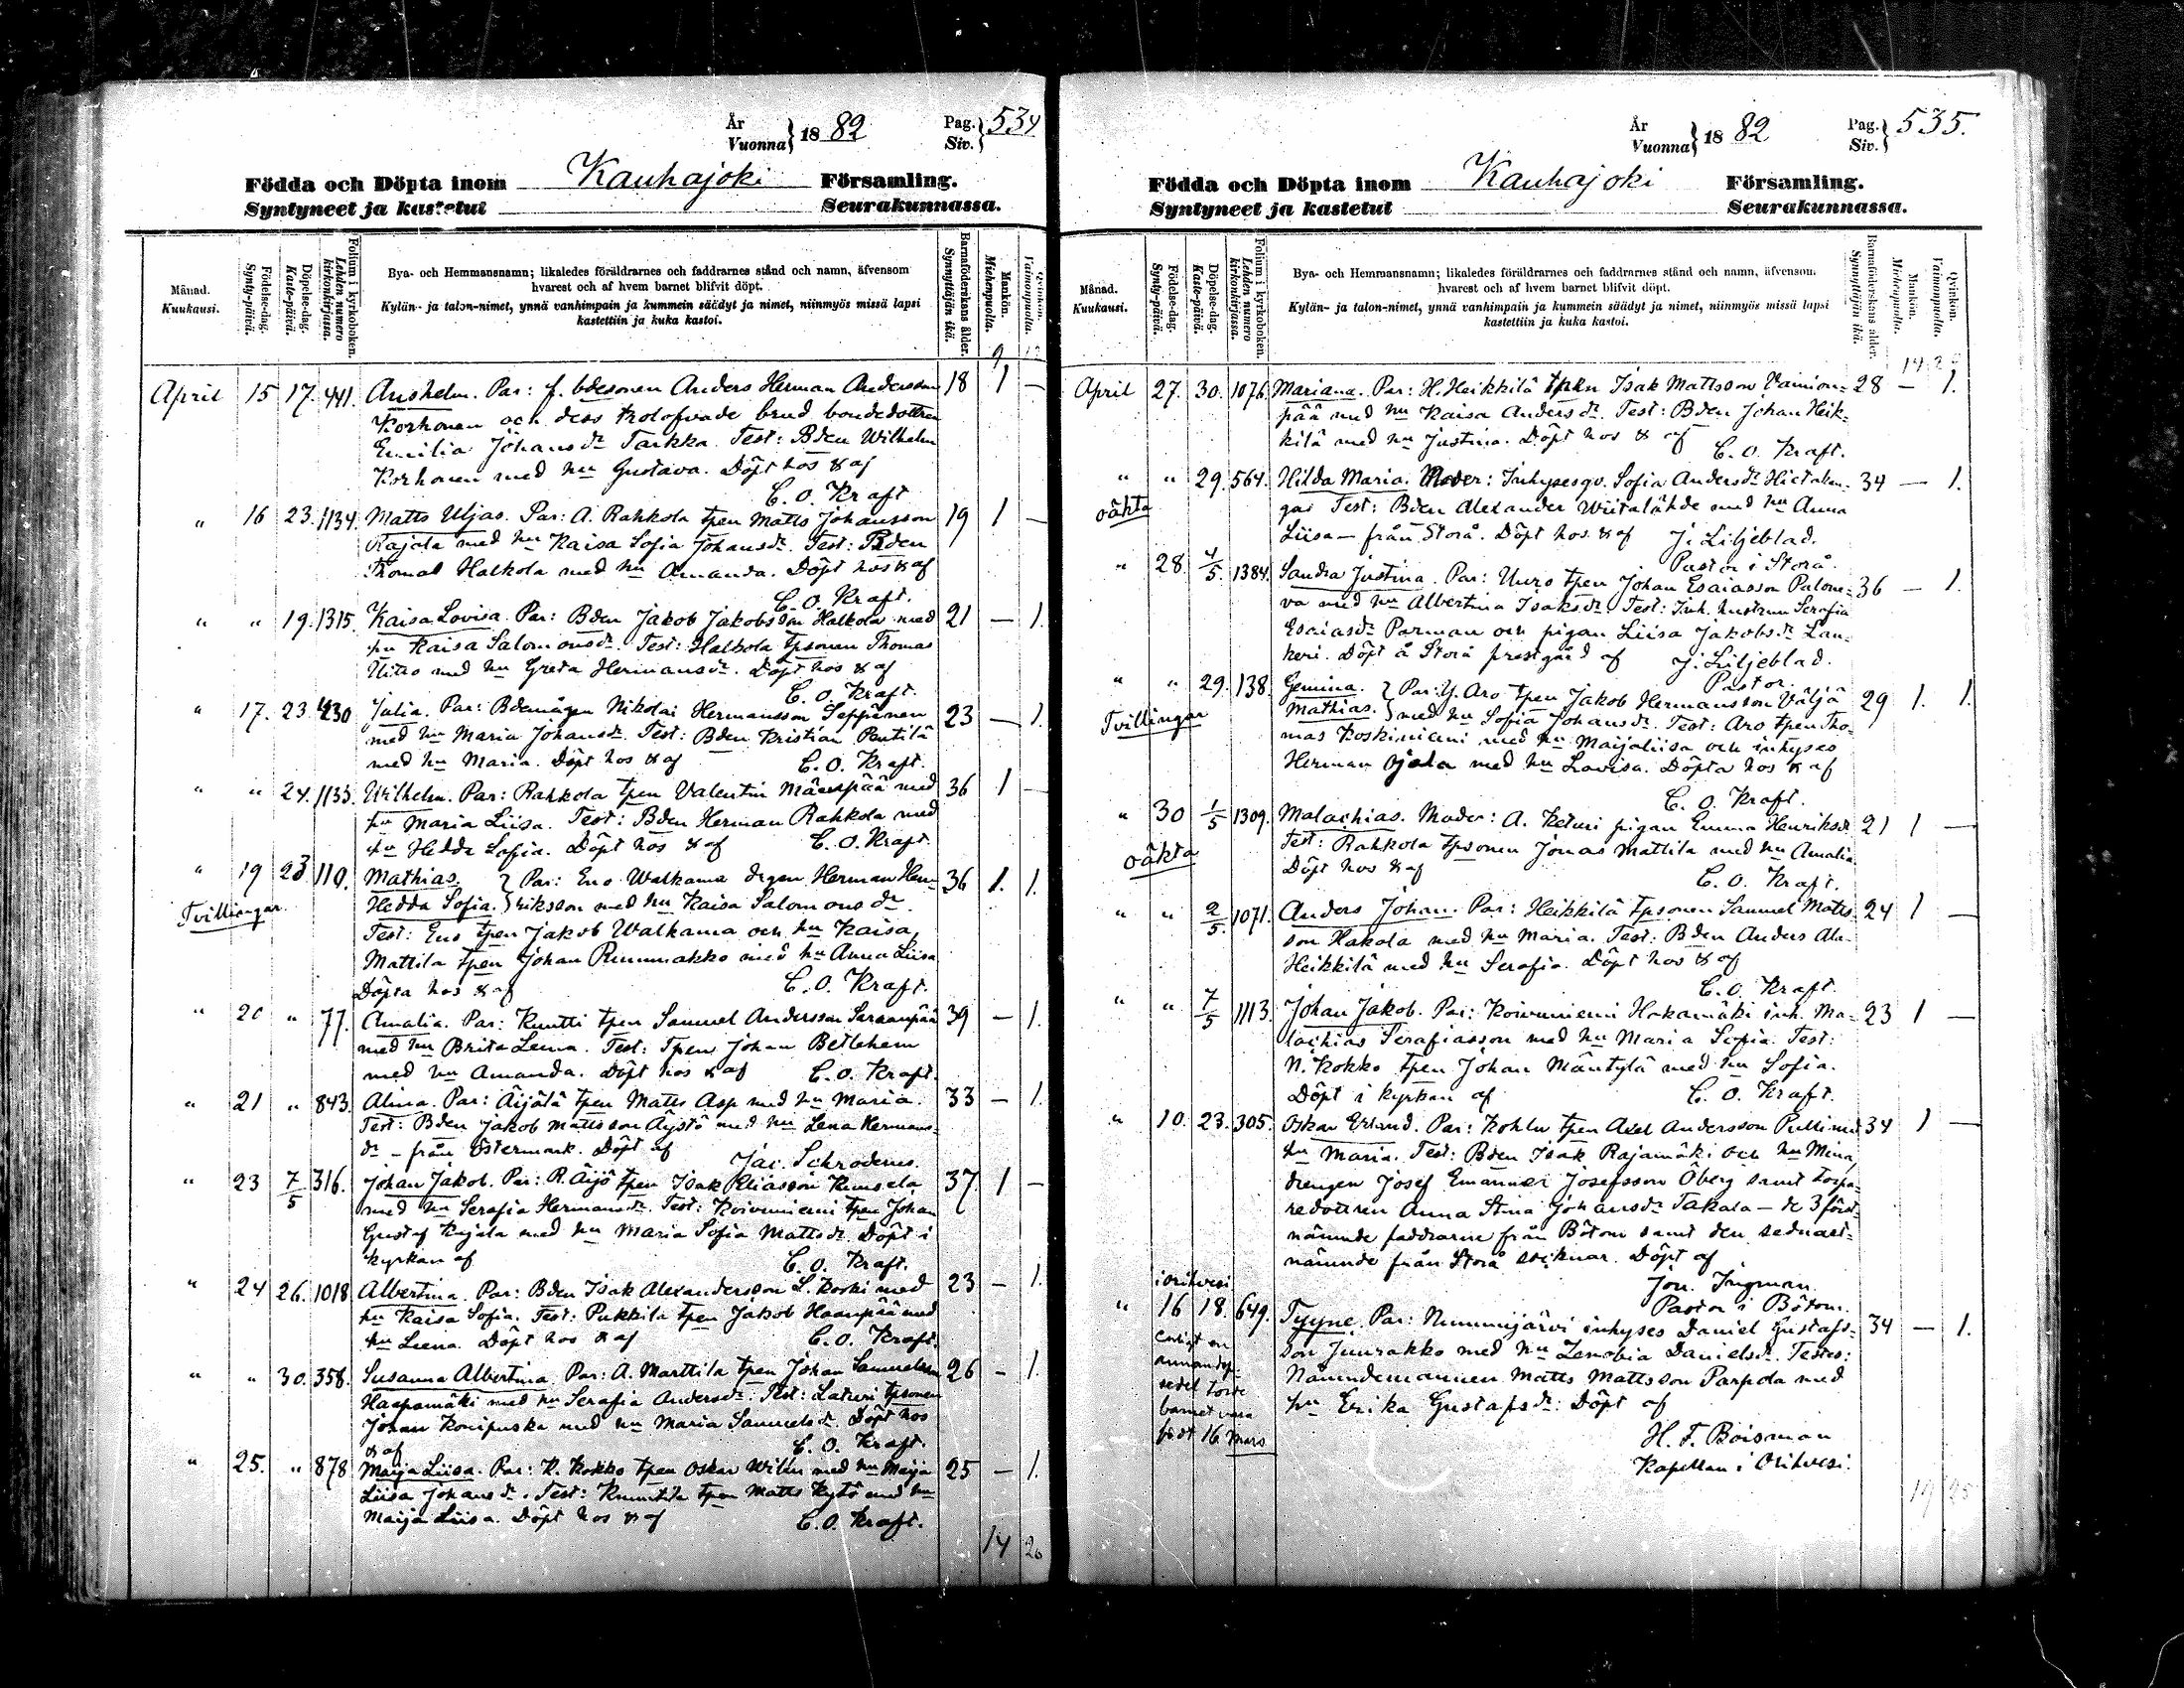 År
Vuonna } 18 82
Pag.
Siv. } 534
Födda och Döpta inom Kauhajoki Församling.
Syntyneet ja kastetut Seurakunnassa.
Månad.
Kuukausi.
Födelse-dag.
Synty-päivä.
Döpelse-dag.
Kaste-päivä.
Folium i kyrkoboken.
Lehden numero kirkonkirjassa.
Bya- och Hemmansnamn; likaledes föräldrarnes och faddrarnes stånd och namn, äfvensom
hvarest och af hvem barnet blifvit döpt.
Kylän- ja talon-nimet, ynnä vanhimpain ja kummein säädyt ja nimet, niinmyös missä lapsi
kastettiin ja kuka kastoi.
Barnaföderskans ålder.
Synnyttäjän ikä.
Mankön.
Miehenpuolta.
Qvinkön.
Vaimonpuolta.
9
April 15 17. 441. Anshelm. Par: f. bdesonen Anders Herman Andersson 18 1 —
Korhonen och dess trolofvade brud bondedottren
Emilia Johansdr Tarkka. Test: Bden Wilhelm
Korhonen med hu Gustava. Döpt hos & af
C. O. Kraft
" 16 23. 1134. Matts Uljas. Par: A. Rahkola tpen Matts Johansson 19 1 —
Rajala med hu Kaisa Sofia Johansdr. Test: Bden
Thomas Halkola med hu Amanda. Döpt hos & af
C. O. Kraft.
" " 19. 1315. Kaisa Lovisa. Par: Bden Jakob Jakobsson Halkola med 21 — 1.
hu Kaisa Salomonsdr. Test: Halkola tpsonen Thomas
med hu Greta Hermansdr. Döpt hos & af
C. O. Kraft.
" 17. 23. 1230 Julia. Par: Bdemågen Nikolai Hermansson Seppänen 23 — 1.
med hu Maria Johansdr. Test: Bden Kristian Pentilä
med hu Maria. Döpt hos & af C. O. Kraft.
" " 24. 1133. Wilhelm. Par: Rahkola tpen Valentin Mäenpää med 36 1 —
hu Maria Liisa. Test: Bden Herman Rahkola med
hu Hedda Sofia. Döpt hos & af C. O. Kraft.
" 19 23 110. Mathias. } Par: Eno Walkama drgen Herman Hen- 36 1. 1.
Tvillingar. Hedda Sofia. } riksson med hu Kaisa Salomonsdr.
Test: Eno tpen Jakob Walkama och hu Kaisa,
Mattila tpen Johan Rummakko med hu Anna Liisa
Döpta hos & af C. O. Kraft.
" 20 " 77. Amalia. Par: Knutti tpen Samuel Andersson Saraanpää 39 — 1.
med hu Brita Lena. Test: Tpen Johan Betlehem
med hu Amanda. Döpt hos & af C. O. Kraft.
" 21 " 843. Alina. Par: Äijälä tpen Matts Asp med hu Maria. 33 — 1.
Test: Bden Jakob Mattsson Äystö med hu Lena Hermans-
dr — från Östermark. Döpt af
Jac. Schroderus.
" 23 7/5 316. Johan Jakob. Par: R. Äijö tpen Isak Eliasson 37. 1 —
med hu Serafia Hermansdr. Test: Koivuniemi tpen Johan
Gustaf Rajala med hu Maria Sofia Mattsdr. Döpt i
kyrkan af C. O. Kraft.
" 24 26. 1018 Albertina. Par: Bden Isak Alexandersson L. Koski med 23 — 1.
hu Kaisa Sofia. Test: Pukkila tpen Jakob Haanpää med
hu Liena. Döpt hos & af C. O. Kraft.
" " 30. 358. Susanna Albertina. Par: A. Marttila tpen Johan Samuelsson 26 — 1.
Haapamäki med hu Serafia Andersdr. Test: Laturi tpsonen
Johan med hu Maria Samuelsdr. Döpt hos
& af C. O. Kraft.
" 25. " 878 Maija Liisa. Par: K. Kokko tpen Oskar Willn med hu Maija 25 — 1.
Liisa Johansdr. Test: tpen Matts Kytö med hu
Maija Liisa. Döpt hos & af C. O. Kraft.
14 26
År
Vuonna } 18 82
Pag.
Siv. } 535.
Födda och Döpta inom Kauhajoki Församling.
Syntyneet ja kastetut Seurakunnassa.
Månad.
Kuukausi.
Födelse-dag.
Synty-päivä.
Döpelse-dag.
Kaste-päivä.
Folium i kyrkoboken.
Lehden numero kirkonkirjassa.
Bya- och Hemmansnamn; likaledes föräldrarnes och faddrarnes stånd och namn, äfvensom
hvarest och af hvem barnet blifvit döpt.
Kylän- ja talon-nimet, ynnä vanhimpain ja kummein säädyt ja nimet, niinmyös missä lapsi
kastettiin ja kuka kastoi.
Barnaföderskans ålder.
Synnyttäjän ikä.
Mankön.
Miehenpuolta.
Qvinkön.
Vaimonpuolta.
14
April 27. 30. 1076. Mariana. Par: H. Heikkilä tpen Isak Mattsson Vainion- 28 — 1.
pää med hu Kaisa Andersdr. Test: Bden Johan Heik-
kilä med hu Justina. Döpt hos & af
C. O. Kraft.
" " 29. 564. Hilda Maria. Moder: Inhysesqv. Sofia Andersdr Hietakan- 34 — 1.
oäkta gas Test: Bden Alexander Wiitalähde med hu Anna
Liisa — från Storå. Döpt hos & af J. Liljeblad.
Pastor i Storå.
" 28. 4/5. 1384. Sandra Justina. Par: Uuro tpen Johan Esaiasson Palone- 36 — 1.
va med hu Albertina Isaksdr. Test: Inh. hustrun Serafia
Esaiasdr Parman och pigan Liisa Jakobsdr Lan-
keri. Döpt å Storå prestgård af J. Liljeblad.
Pastor.
" " 29. 138. Gemina. } Par: Y. Aro tpen Jakob Hermansson Väljä 29 1. 1.
Tvillingar Mathias. } med hu Sofia Johansdr. Test: Aro tpen Tho-
mas Koskiniemi med hu Maijaliisa och inhyses
Herman Ojala med hu Lovisa. Döpta hos & af
C. O. Kraft.
" 30 1/5 1309. Malachias. Moder: A. Keturi pigan Emma Henriksdr 21 1 —
oäkta Test: Rahkola tpsonen Jonas Mattila med hu Amalia
Döpt hos & af
C. O. Kraft.
" " 2/5. 1071. Anders Johan. Par: Heikkilä tpsonen Samuel Matts- 24 1 —
son Hakola med hu Maria. Test: Bden Anders Ala-
Heikkilä med hu Serafia. Döpt hos & af
C. O. Kraft.
" " 7/5 1113. Johan Jakob. Par: Koivuniemi Hakamäki inh. Ma- 23 1 —
lachias Serafiasson med hu Maria Sofia. Test:
N. Kokko tpen Johan Mäntylä med hu Sofia.
Döpt i kyrkan af C. O. Kraft.
" 10. 23. 305. Oskar Erland. Par: Kohlu tpen Axel Andersson Pulli med 34 1 —
hu Maria. Test: Bden Isak Rajamäki och hu Mina,
drengen Josef Emanuel Josefsson Öberg samt torpa-
redottren Anna Stina Johansdr Takala — de 3 först-
nämnde faddrarne från Bötom samt den sednast-
nämnde från Storå socknar. Döpt af
Jon. Ingman.
Pastor i Bötom.
i Orihvesi
" 16 18. 649. Tyyne. Par: Nummijärvi inhyses Daniel Gustafs- 34 — 1.
son Juurakko med hu Zenobia Danielsdr. Testes:
Nämndemannen Matts Mattsson Parpola med
hu Erika Gustafsdr. Döpt af
H. F. Boisman
Kapellan i Orihvesi.
enligt en
annan dop-
sedel torde
barnet vara
födt 16 Mars
19 25